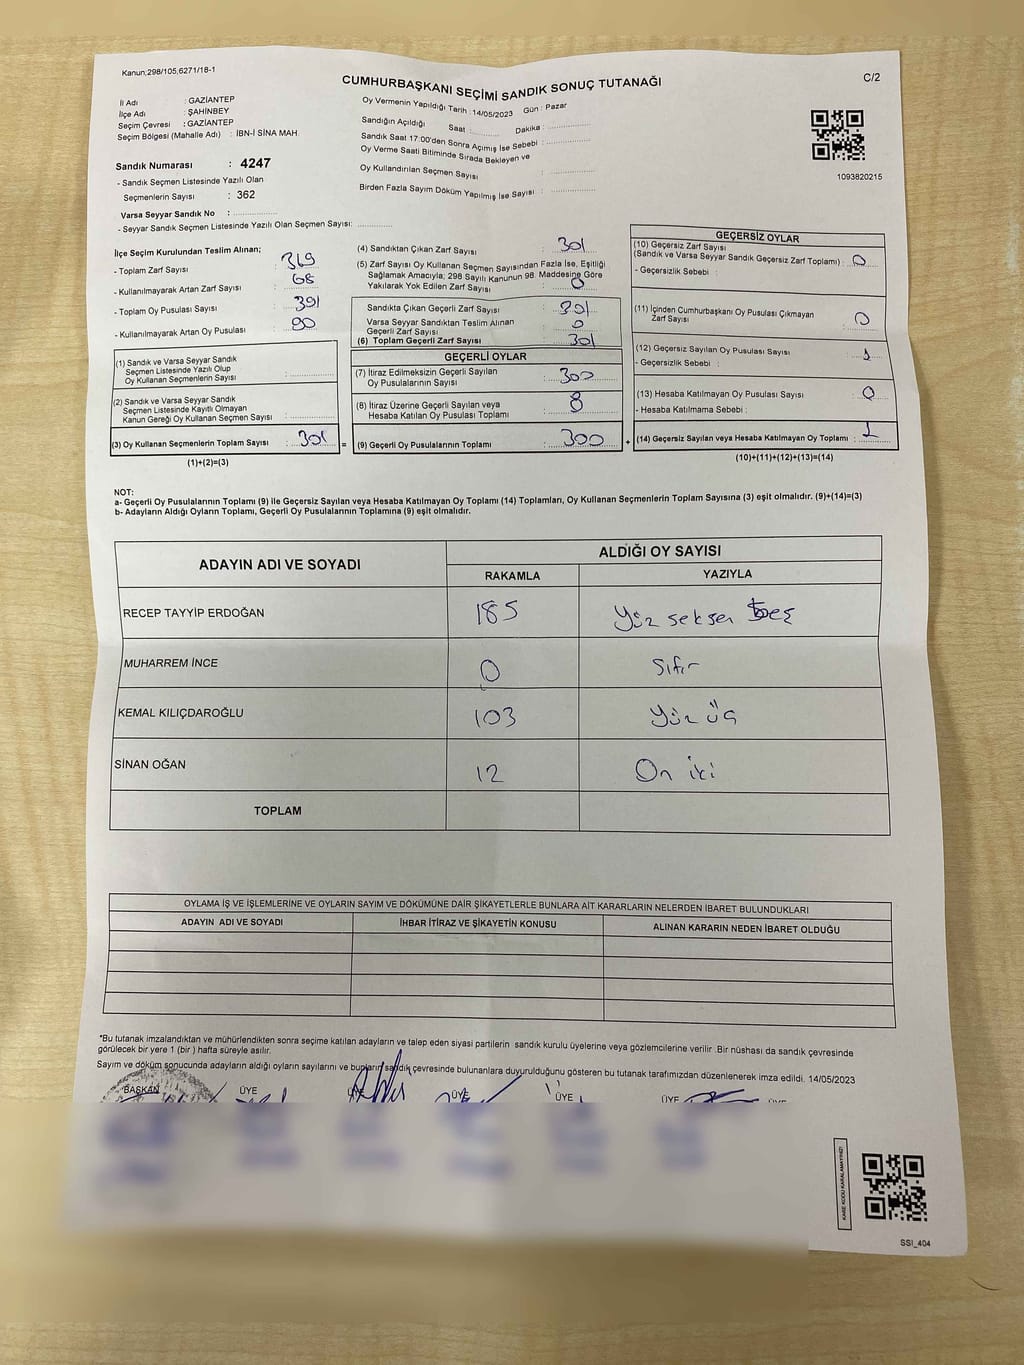 Kanun;298/105,6271/18-1
CUMHURBAŞKANI SEÇİMİ SANDIK SONUÇ TUTANAĞI
C/2
İl Adı : GAZİANTEP
İlçe Adı : ŞAHİNBEY
Seçim Çevresi : GAZİANTEP
Seçim Bölgesi (Mahalle Adı) : İBN-İ SİNA MAH.
Sandık Numarası : 4247
- Sandık Seçmen Listesinde Yazılı Olan
Seçmenlerin Sayısı : 362
Varsa Seyyar Sandık No : ..............
- Seyyar Sandık Seçmen Listesinde Yazılı Olan Seçmen Sayısı: ............
Oy Vermenin Yapıldığı Tarih : 14/05/2023 Gün : Pazar
Sandığın Açıldığı Saat :........ Dakika : ..............
Sandık Saat 17:00'den Sonra Açımış İse Sebebi : ..............
Oy Verme Saati Bitiminde Sırada Bekleyen ve
Oy Kullandırılan Seçmen Sayısı : ..............
Birden Fazla Sayım Döküm Yapılmış İse Sayısı : ..............
1093820215
İlçe Seçim Kurulundan Teslim Alınan;
- Toplam Zarf Sayısı : 369
- Kullanılmayarak Artan Zarf Sayısı : 68
- Toplam Oy Pusulası Sayısı : 391
- Kullanılmayarak Artan Oy Pusulası : 90
(1) Sandık ve Varsa Seyyar Sandık
Seçmen Listesinde Yazılı Olup
Oy Kullanan Seçmenlerin Sayısı : ..............
(2) Sandık ve Varsa Seyyar Sandık
Seçmen Listesinde Kayıtlı Olmayan
Kanun Gereği Oy Kullanan Seçmen Sayısı : ..............
(3) Oy Kullanan Seçmenlerin Toplam Sayısı : 301 =
(1)+(2)=(3)
(4) Sandıktan Çıkan Zarf Sayısı : 301
(5) Zarf Sayısı Oy Kullanan Seçmen Sayısından Fazla İse, Eşitliği
Sağlamak Amacıyla; 298 Sayılı Kanunun 98. Maddesine Göre
Yakılarak Yok Edilen Zarf Sayısı : 0
Sandıkta Çıkan Geçerli Zarf Sayısı : 301
Varsa Seyyar Sandıktan Teslim Alınan
Geçerli Zarf Sayısı : 0
(6) Toplam Geçerli Zarf Sayısı : 301
GEÇERLİ OYLAR
(7) İtiraz Edilmeksizin Geçerli Sayılan
Oy Pusulalarının Sayısı : 300
(8) İtiraz Üzerine Geçerli Sayılan veya
Hesaba Katılan Oy Pusulası Toplamı :
(9) Geçerli Oy Pusulalarının Toplamı : 300 +
GEÇERSİZ OYLAR
(10) Geçersiz Zarf Sayısı
(Sandık ve Varsa Seyyar Sandık Geçersiz Zarf Toplamı) : 0
- Geçersizlik Sebebi :
(11) İçinden Cumhurbaşkanı Oy Pusulası Çıkmayan
Zarf Sayısı : 0
(12) Geçersiz Sayılan Oy Pusulası Sayısı : 1
- Geçersizlik Sebebi :
(13) Hesaba Katılmayan Oy Pusulası Sayısı : 0
- Hesaba Katılmama Sebebi :
(14) Geçersiz Sayılan veya Hesaba Katılmayan Oy Toplamı : 1
(10)+(11)+(12)+(13)=(14)
NOT:
a- Geçerli Oy Pusulalarının Toplamı (9) ile Geçersiz Sayılan veya Hesaba Katılmayan Oy Toplamı (14) Toplamları, Oy Kullanan Seçmenlerin Toplam Sayısına (3) eşit olmalıdır. (9)+(14)=(3)
b- Adayların Aldığı Oyların Toplamı, Geçerli Oy Pusulalarının Toplamına (9) eşit olmalıdır.
ADAYIN ADI VE SOYADI ALDIĞI OY SAYISI
RAKAMLA YAZIYLA
RECEP TAYYİP ERDOĞAN 185 Yüz seksen beş
MUHARREM İNCE 0 sıfır
KEMAL KILIÇDAROĞLU 103 Yüz üç
SİNAN OĞAN 12 On iki
TOPLAM
OYLAMA İŞ VE İŞLEMLERİNE VE OYLARIN SAYIM VE DÖKÜMÜNE DAİR ŞİKAYETLERLE BUNLARA AİT KARARLARIN NELERDEN İBARET BULUNDUKLARI
ADAYIN ADI VE SOYADI İHBAR İTİRAZ VE ŞİKAYETİN KONUSU ALINAN KARARIN NEDEN İBARET OLDUĞU
*Bu tutanak imzalandıktan ve mühürlendikten sonra seçime katılan adayların ve talep eden siyasi partilerin sandık kurulu üyelerine veya gözlemcilerine verilir .Bir nüshası da sandık çevresinde
görülecek bir yere 1 (bir ) hafta süreyle asılır.
Sayım ve döküm sonucunda adayların aldığı oyların sayılarını ve bunların sandık çevresinde bulunanlara duyurulduğunu gösteren bu tutanak tarafımızdan düzenlenerek imza edildi. 14/05/2023
BAŞKAN ÜYE ÜYE ÜYE ÜYE ÜYE ÜYE
KARE KODU KARALAMAYINIZ!
SSI_404